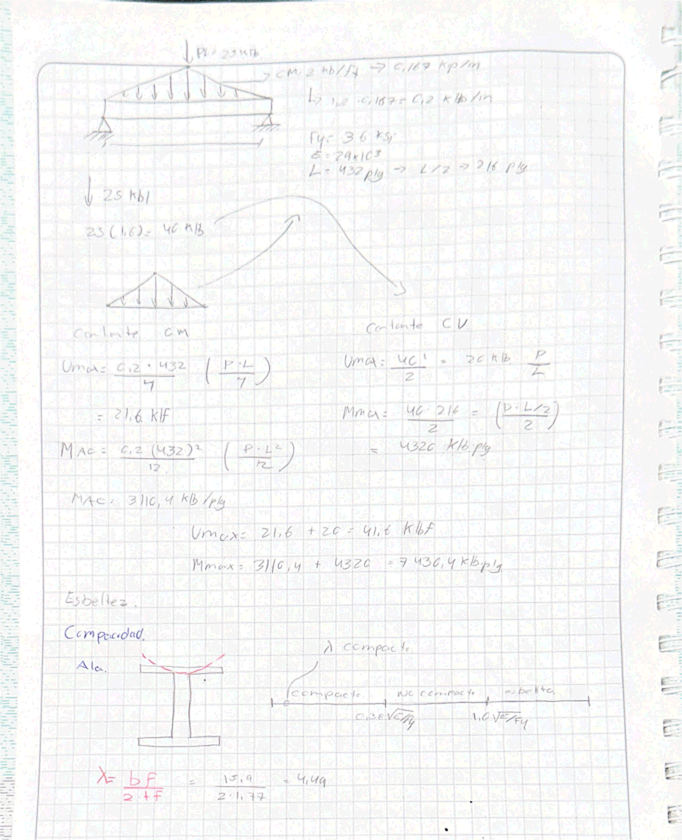 PL = 25 klb
CM = 2 klb/ft → 0,167 kp/in
↳ 1,2 · 0,167 = 0,2 klb/in
Fy = 36 ksi
E = 29x10³
L = 432 plg → L/2 → 216 plg
↓ 25 kbl
25 (1,6) = 40 klb
Cortante CM
Vmax = 0,2 · 432 / 4 ( P·L / 4 )
= 21,6 klf
MAC = 0,2 (432)² / 12 ( P·L² / 12 )
MAC = 3110,4 klb/plg
Cortante CV
Vmax = 40 / 2 = 20 klb P / L
Mmax = 40 · 216 / 2 = ( P·L/2 / 2 )
= 4320 klb.plg
Vmax = 21,6 + 20 = 41,6 klbf
Mmax = 3110,4 + 4320 = 7430,4 klb plg
Esbeltez.
Compacidad.
Ala.
λ compacto
compacto no compacto esbelta
0,38√E/Fy 1,0√E/Fy
λ = bf / 2·tf = 15,9 / 2·1,77 = 4,49